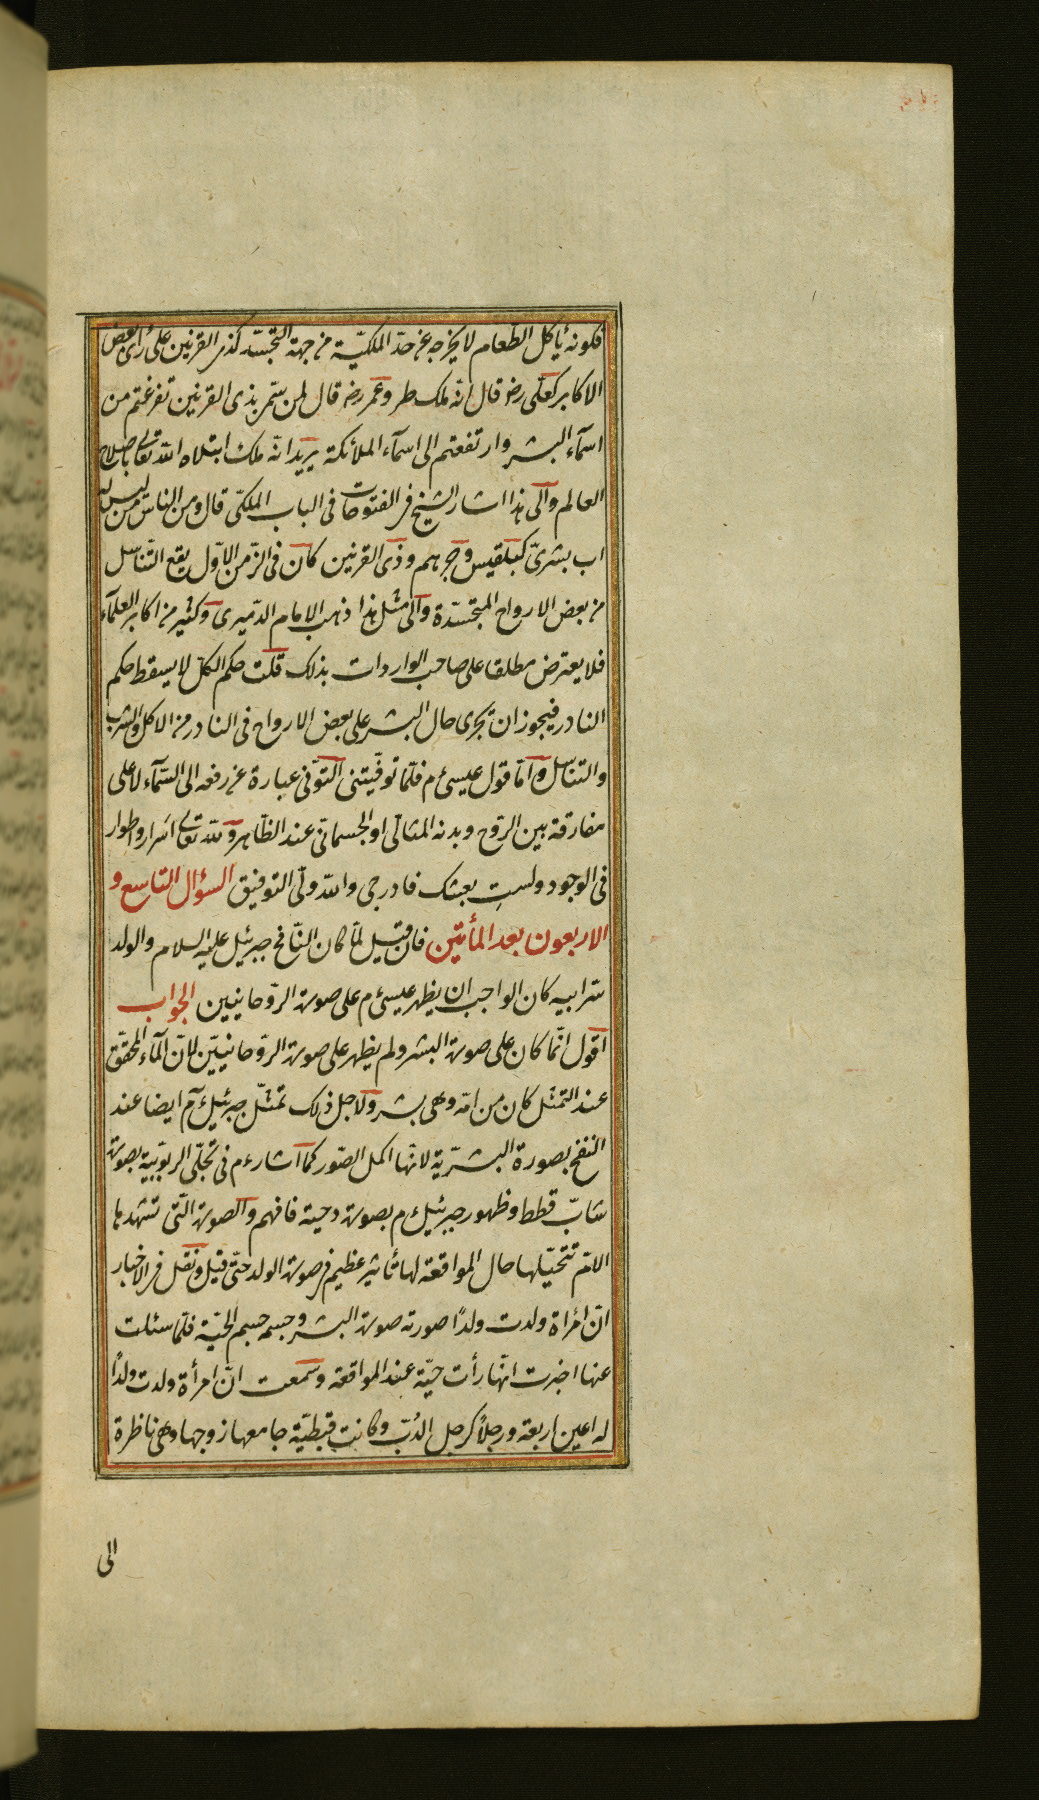 فكونه يأكل الطعام لا يخرجه عن حدّ الملكيّة من جهة التجسّد كذى القرنين على رأى بعض
الاكابر كعلّى رضه قال انّه ملك طر وعمر رضه قال لمن سمّر بذى القرنين تفرغتم من
اسمآء البشر وارتفعتم الى اسمآء الملائكة يريد انّه ملك ابتلاه اللّه تعالى باصلاح
العالم والى هذا اشار الشيخ فى الفتوحات فى الباب الملكّى قال ومن الناس من ليس له
اب بشرىّ كبلقيس وجرهم وذى القرنين كان فى الزّمن الاوّل يقع التّناسل
من بعض الارواح المتجسّدة والى مثل هذا ذهب الامام الدّميرى وكثير من اكابر العلمآء
فلا يعترض مطلقا على صاحب الواردات بذلك قلت حكم الكلّ لا يسقط حكم
النادر فيجوز ان تجرى حال البشر على بعض الارواح فى النادر من الاكل والشرب
والتناسل وامّا قول عيسى ءم فلمّا توفّيتنى التوفّى عبارة عن رفعه الى السّمآء لا على
مفارقة بين الروّح وبدنه المثالّى او الجسمانّى عند الظّاهر وللّه تعالى اسرار واطوار
فى الوجود ولست بعشك فادرجى واللّه ولّى التوفيق السؤال التاسع و
الاربعون بعد المأتين فان قيل لمّا كان النّافخ جبرئيل عليه السلام والولد
سرّ ابيه كان الواجب ان يظهر عيسى ءم على صورة الرّوحانيين الجواب
اقول انّما كان على صورة البشر ولم يظهر على صورة الرّوحانييّن لانّ المآء المحقّق
عند التمثل كان من امّه وهى بشر ولاجل ذلك تمثّل جبرئيل ءم ايضا عند
النفخ بصورة البشرّية لانّها اكمل الصّور كما اشار ءم فى تجلّى الربوّبية بصورة
شابّ قطط وظهور جبرئيل ءم بصورة دحية فافهم والصورة الّتى تشهدها
الامّ تتخيّلها حال المواقعة لها تأثير عظيم فى صورة الولد حتّى قيل ونقل فى الاخبار
انّ امرأة ولدت ولدًا صورته صورة البشر وجسمه جسم الحيّة فلمّا سئلت
عنها اخبرت انّها رأت حيّة عند المواقعة وسمعت انّ امرأة ولدت ولدًا
له اعين اربعة ورجلاً كرجل الدّبّ وكانت قبطيّة جامعها زوجها وهى ناظرة
الى